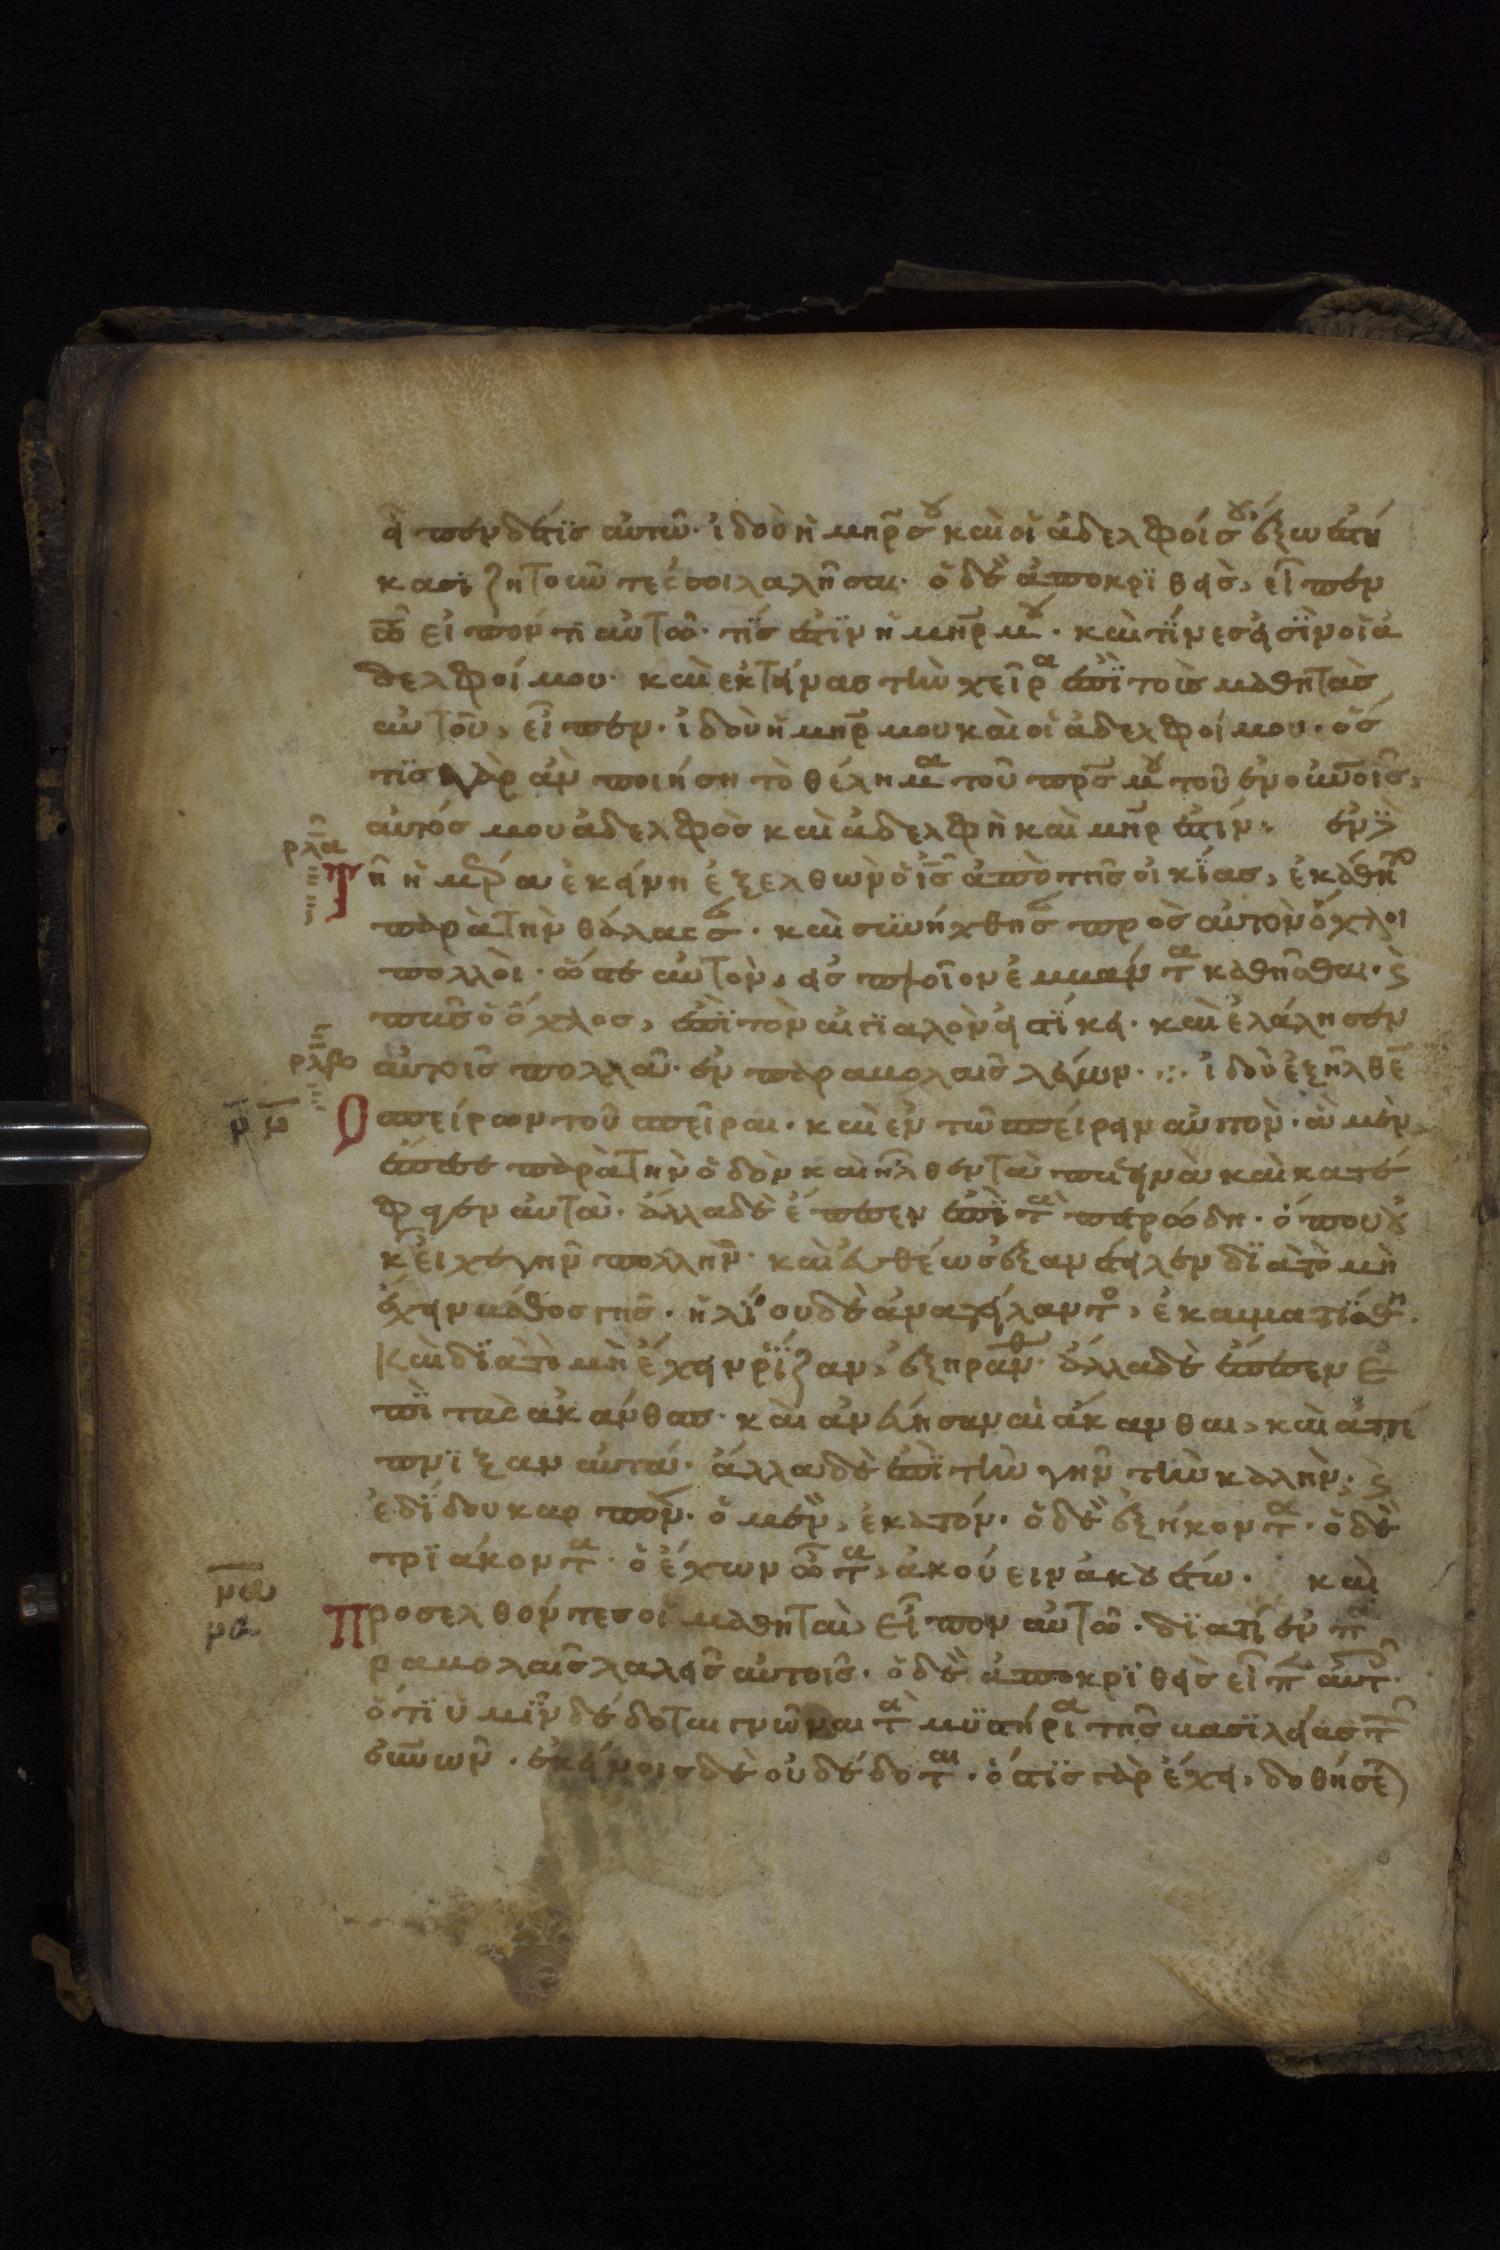 εἶπεν δέ τϊς αὐτῶ· ἰδοὺ ἡ μηρ σου καὶ οἱ ἀδελφοί σου, ἔξω ἐστή
κασϊ ζητοῦντές σοι λαλῆσαι· ὁ δὲ ἀποκρϊθεὶς, εἶπεν
τῶ εἰπόντι αὐτῶ· τίς ἐστϊν ἡ μηρ μου· καὶ τίνες εἰσϊν οἱ ἀ
δελφοί μου· καὶ ἐκτείνας τὴν χεῖρα ἐπϊ τοὺς μαθητὰς
αὐτοῦ, εἶπεν· ἰδοὺ ἡ μηρ μου καὶ οἱ ἀδελφοί μου· ὅσ
τϊς γὰρ ἂν ποιήση τὸ θέλημα τοῦ πρς μου τοῦ ἐν οὐνοις,
αὐτός μου ἀδελφὸς καὶ ἀδελφὴ καὶ μηρ ἐστίν· ἐν
ρλα
Τῆ ἡμέρα ἐκείνη ἐξελθὼν ὁ ις ἀπὸ τῆς οἰκϊας, ἐκάθητο
παρὰ τὴν θάλασσ· καὶ συνήχθησ πρὸς αὐτὸν ὄχλοι
πολλοὶ· ὥστε αὐτὸν, εἰς πλοῖον ἐμβάντα καθῆσθαι· καὶ
πᾶς ὁ ὄχλος, ἐπϊ τὸν αἰγϊαλὸν εἱστϊκει· καὶ ἐλάλησεν
ρλβ αὐτοῖς πολλὰ· ἐν παραβολαῖς λέγων· ἰδοὺ ἐξῆλθεν
μ μ Ὁ σπείρων τοῦ σπεῖραι· καὶ ἐν τῶ σπείρειν αὐτὸν· ἃ μὲν
ἔπεσε παρὰ τὴν ὁδὸν καὶ ἦλθεν τὰ πετεινὰ καὶ κατέ
φαγεν αὐτὰ· ἄλλα δὲ ἔπεσεν ἐπϊ τὰ πετρώδη· ὅπου οὐ
κ εἶχε γῆν πολλὴν· καὶ εὐθέως ἐξανέτειλεν δϊὰ τὸ μὴ
ἔχειν βάθος γῆς· ἡλίου δὲ ἀνατείλαντο, ἐκαυματϊσθη·
Καὶ δϊὰ τὸ μὴ ἔχειν ῥίζαν, ἐξηράνθ· ἄλλα δὲ ἔπεσεν ἐ
πϊ τὰς ἀκάνθας· καὶ ἀνέβησαν αἱ ἄκανθαι, καὶ ἀπέ
πνϊξαν αὐτά· ἄλλα δὲ ἐπϊ τὴν γῆν τὴν καλὴν· καὶ
ἐδίδου καρπὸν· ὃ μὲν, ἑκατόν· ὃ δὲ ἑξήκοντα· ὃ δὲ
τρϊάκοντα· ὁ ἔχων ὦτα, ἀκούειν ἀκουέτω· καὶ
μβ
μα Προσελθόντες οἱ μαθηταὶ, εἶπον αὐτῶ· δϊατί ἐν πα
ραβολαῖς λαλεῖς αὐτοῖς· ὁ δὲ ἀποκρϊθεὶς εἶπ αὐτ·
ὅτϊ ὑμῖν δέδοται γνῶναι τὰ μυστήρια τῆς βασϊλείας τ
οὐνων· ἐκείνοις δὲ οὐ δέδοται· ὅστϊς γὰρ ἔχει, δοθήσε